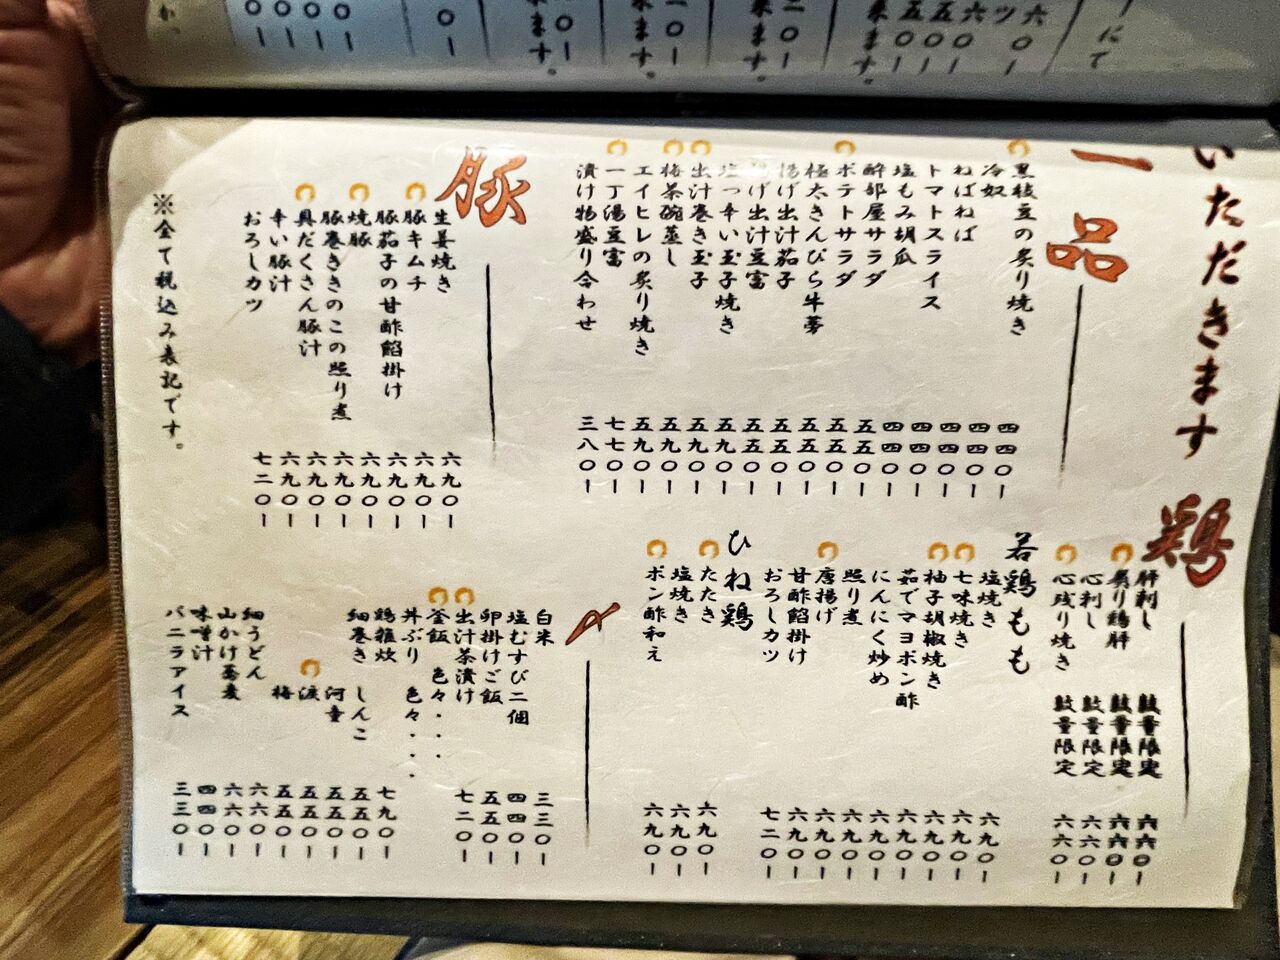 いただきます
一品
黒枝豆の炙り焼き 四四〇ー
冷奴 四四〇ー
ねばねば 四四〇ー
トマトスライス 四四〇ー
塩もみ胡瓜 四四〇ー
酔部屋サラダ 五五〇ー
ポテトサラダ 五五〇ー
極太きんぴら牛蒡 五五〇ー
揚げ出汁茄子 五五〇ー
揚げ出汁豆富 五五〇ー
塩っ辛い玉子焼き 五九〇ー
出汁巻き玉子 五九〇ー
梅茶碗蒸し 五九〇ー
エイヒレの炙り焼き 五九〇ー
一丁湯豆富 七七〇ー
漬け物盛り合わせ 三八〇ー
豚
生姜焼き 六九〇ー
豚キムチ 六九〇ー
豚茄子の甘酢餡掛け 六九〇ー
焼豚 六九〇ー
豚巻ききのこの照り煮 六九〇ー
具だくさん豚汁 六九〇ー
辛い豚汁 六九〇ー
おろしカツ 七二〇ー
※全て税込み表記です。
鶏
肝刺し 数量限定 六六〇ー
炙り鶏肝 数量限定 六六〇ー
心刺し 数量限定 六六〇ー
心残り焼き 数量限定 六六〇ー
若鶏もも
塩焼き 六九〇ー
七味焼き 六九〇ー
柚子胡椒焼き 六九〇ー
茹でマヨポン酢 六九〇ー
にんにく炒め 六九〇ー
照り煮 六九〇ー
唐揚げ 六九〇ー
甘酢餡掛け 六九〇ー
おろしカツ 七二〇ー
ひね鶏
たたき 六九〇ー
塩焼き 六九〇ー
ポン酢和え 六九〇ー
〆
白米 三三〇ー
塩むすび二個 四四〇ー
卵掛けご飯 五五〇ー
出汁茶漬け 七二〇ー
釜飯 色々・・・
丼ぶり 色々・・・
鶏雑炊 七九〇ー
細巻き しんこ 五五〇ー
河童 五五〇ー
涙 五五〇ー
梅 五五〇ー
細うどん 六六〇ー
山かけ蕎麦 六六〇ー
味噌汁 四四〇ー
バニラアイス 三三〇ー